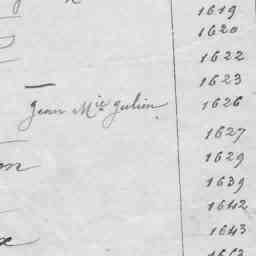 1619
1620
1622
1623
Jean Mie Julien 1626
1627
1629
1639
1642
1643